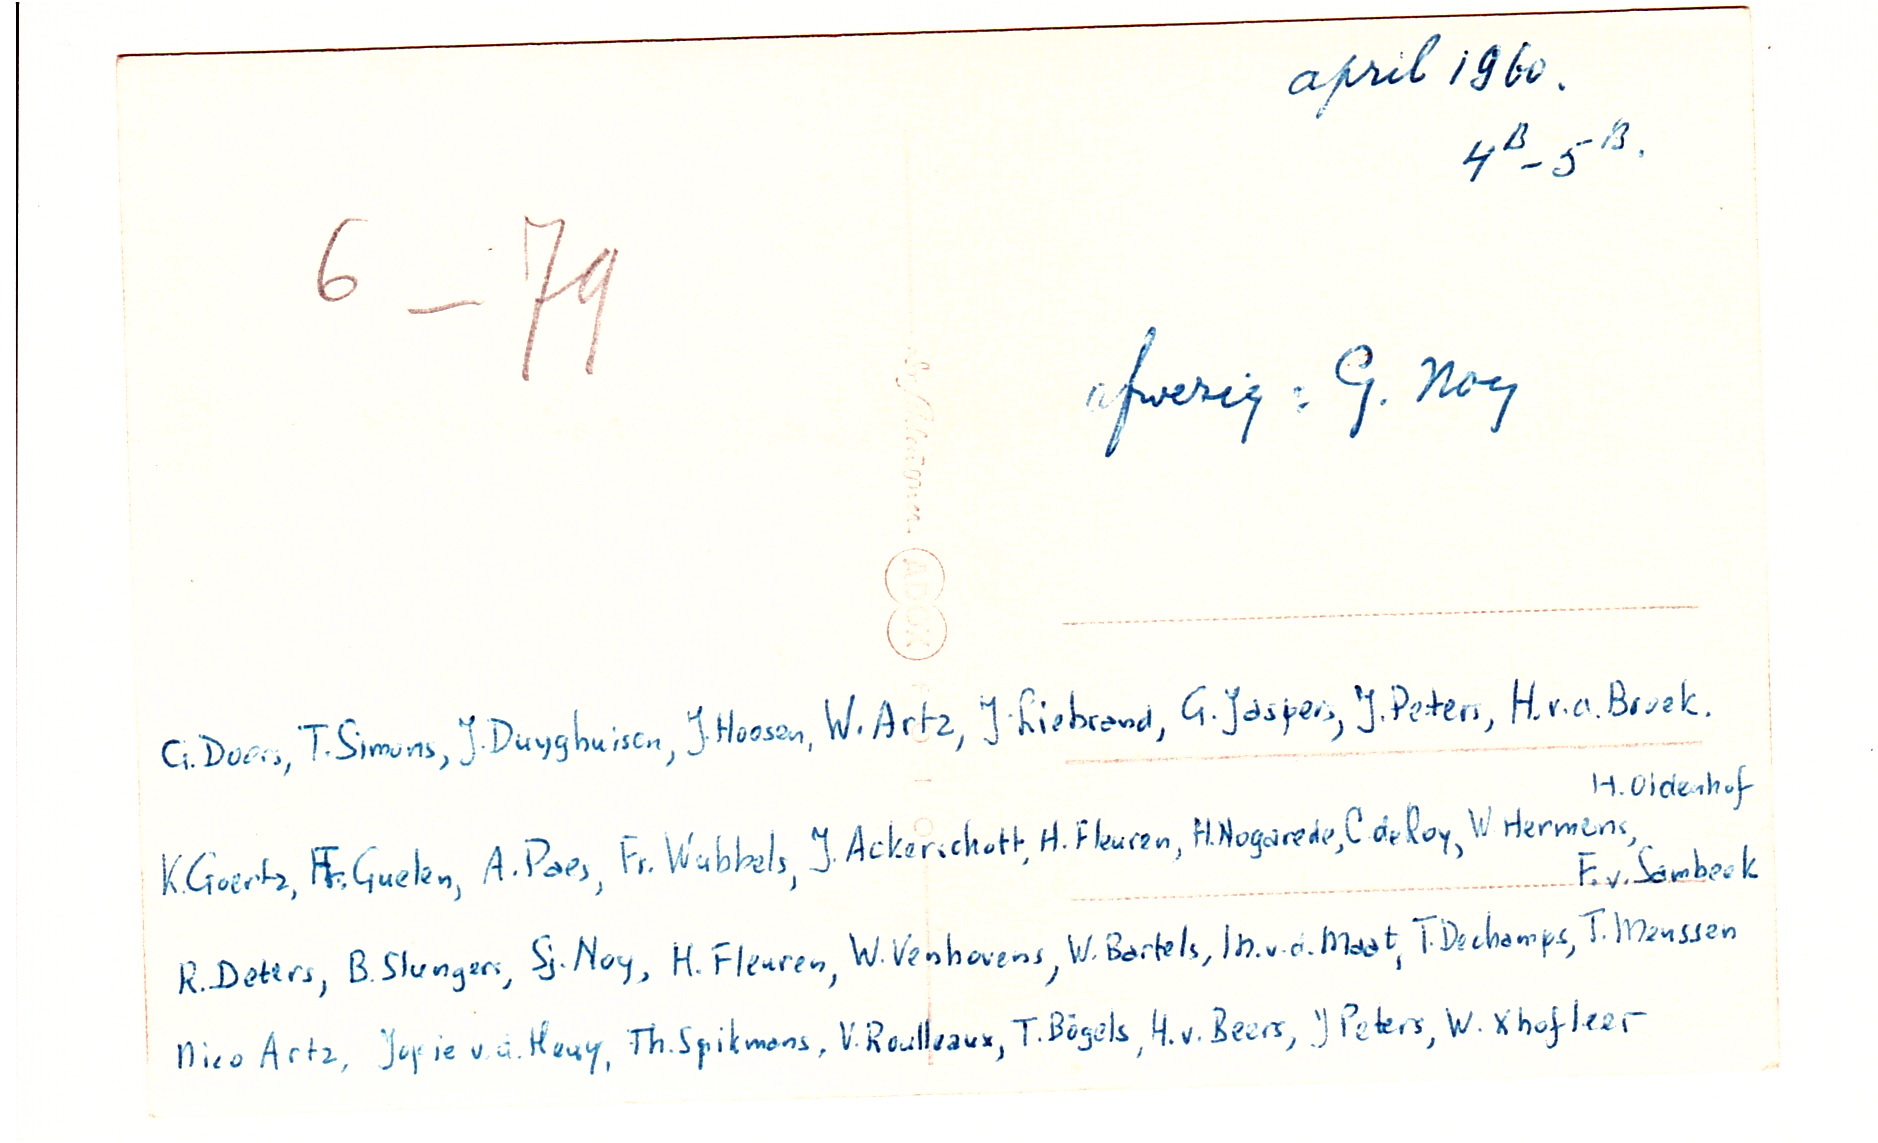 april 1960.
4B - 5B.
6 - 79
afwezig : G. Noy
ADOX
G. Doers, T. Simons, J. Duyghuisen, J. Hoosen, W. Artz, J. Liebrand, G. Jaspers, J. Peters, H. v. d. Broek.
H. Oldenhof
K. Goertz, Fr. Guelen, A. Paes, Fr. Wubbels, J. Ackerschott, H. Fleuren, H. Nogarede, C. de Roy, W Hermens,
F. v. Sambeek
R. Deters, B. Slungers, Sj. Noy, H. Fleuren, W. Venhovens, W. Bartels, M. v. d. Maat, T. Dechamps, T. Menssen
Nico Artz, Jopie v. d. Heuy, Th. Spikmans, V. Roulleaux, T. Bögels, H. v. Beers, J Peters, W. Xhofleer